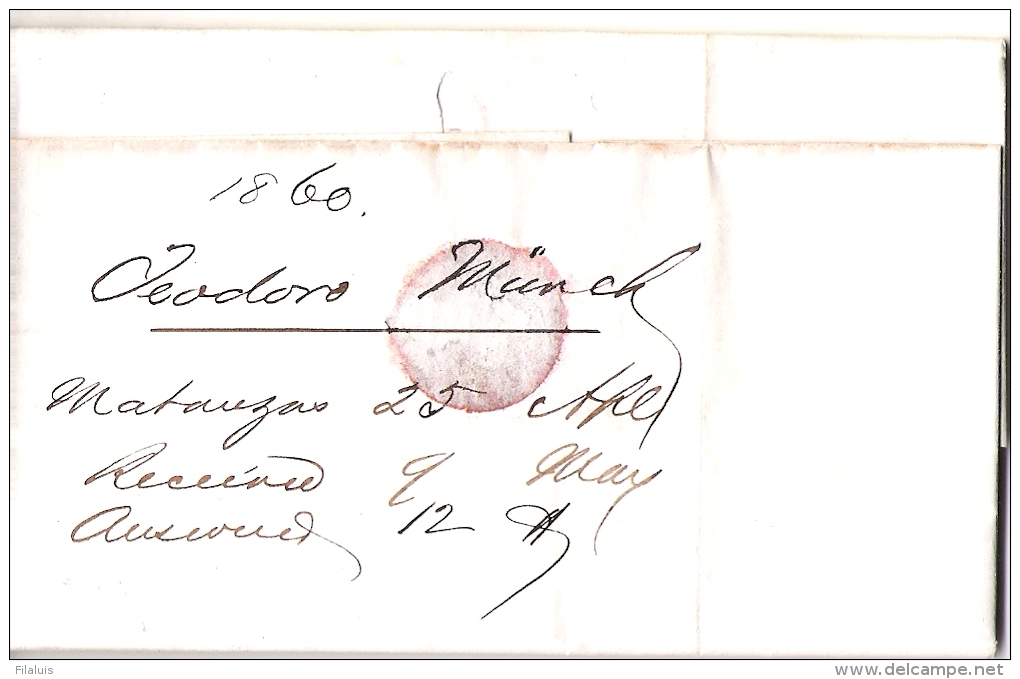 1860.
Teodoro Münch
Matanzas 25 Apl
Received 9 May
Answered 12 "
Filaluis
www.delcampe.net